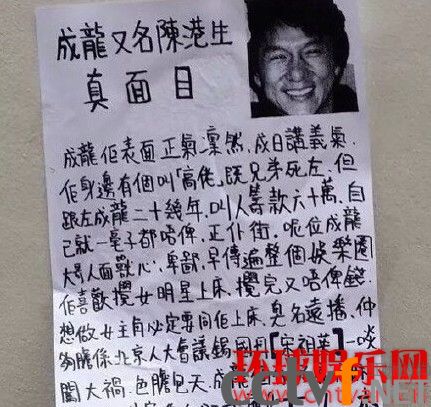 成龍又名陳港生
真面目
成龍佢表面正氣凜然,成日講義氣
佢身邊有個叫「高佬」既兄弟死左,但
跟左成龍二十幾年,叫人籌款六十萬,自
己就一毫子都唔俾,正仆街。呢位成龍
大哥人面獸心,卑鄙,早傳遍整個娛樂圈
佢喜歡攪女明星上床,攪完又唔俾錢
想做女主角必定要同佢上床,臭名遠播,仲
夠膽係北京人大會議錫 【宋祖英】一啖
闖大禍,色膽包天,成龍
环球娱乐网